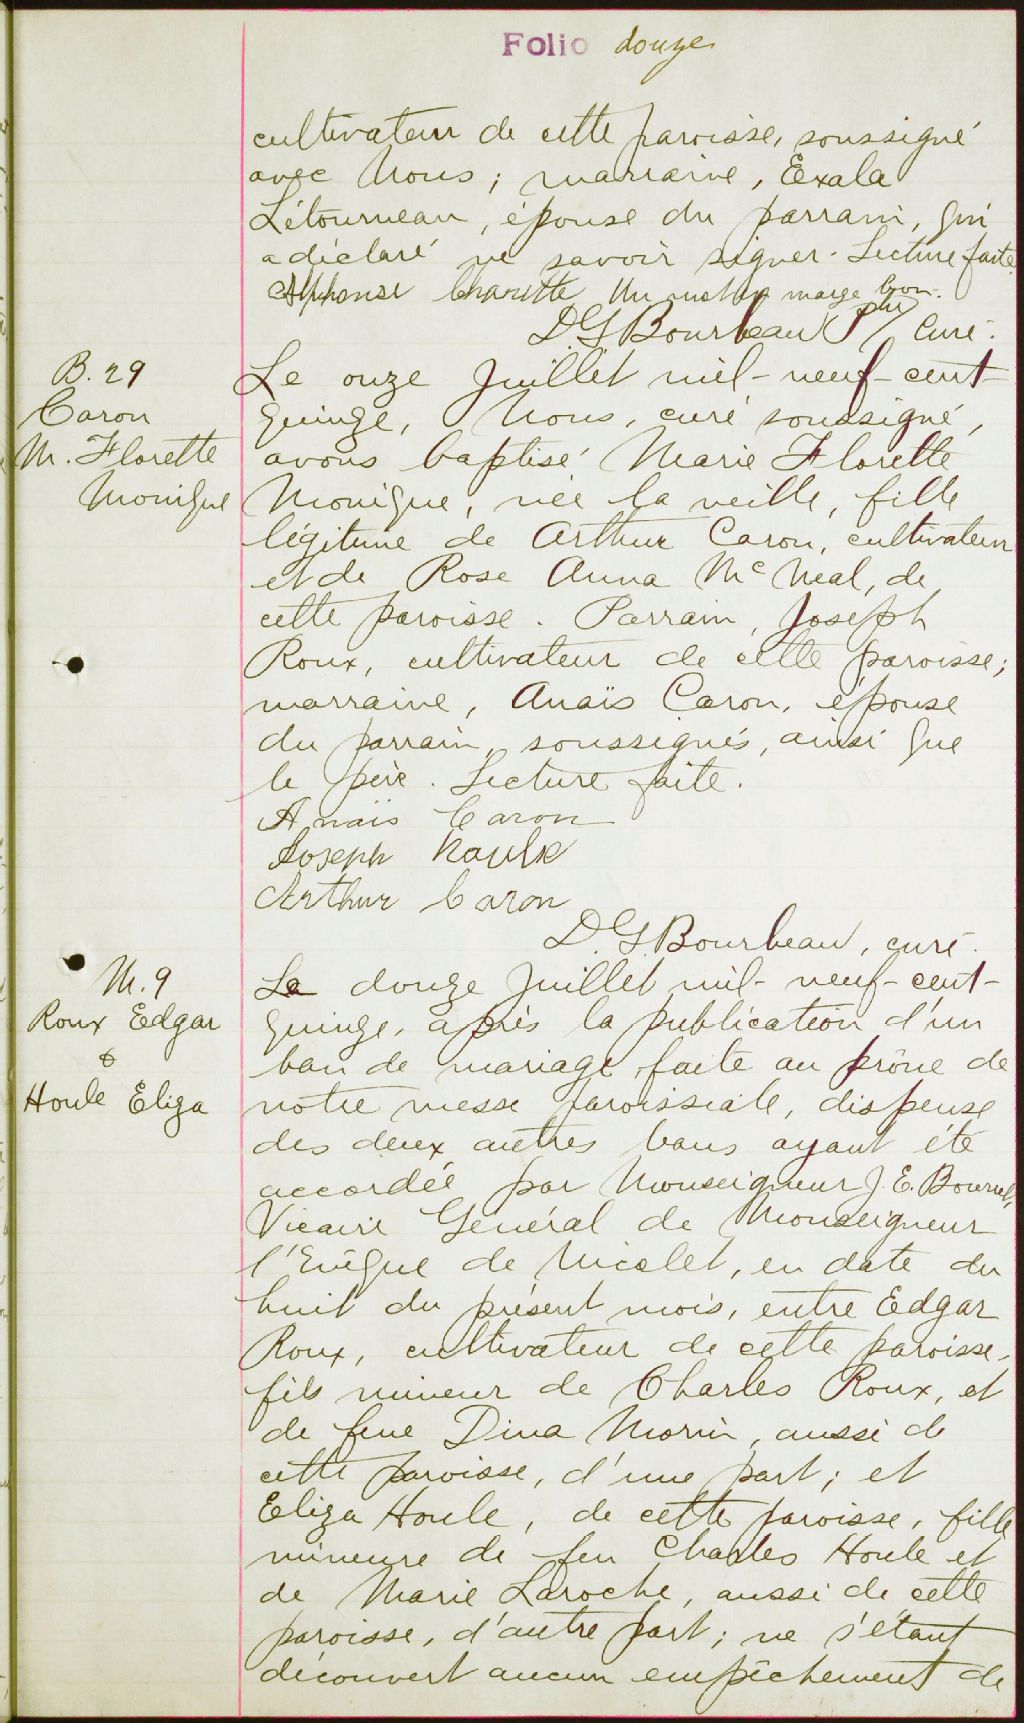 Folio douze
cultivateur de cette paroisse, soussigné
avec Nous; marraine, Exala
Létourneau, épouse du parrain, qui
a déclaré ne savoir signer. Lecture faite.
Alphonse Charette Un mot en marge bon.
D.G. Bourbeau Ptre Curé.
B. 29
Caron
M. Florette
Monique
Le onze Juillet mil-neuf-cent-
quinze, Nous, curé soussigné,
avons baptisé Marie Florette
Monique, née la veille, fille
légitime de Arthur Caron, cultivateur
et de Rose Anna Mc Neal, de
cette paroisse. Parrain, Joseph
Roux, cultivateur de cette paroisse;
marraine, Anaïs Caron, épouse
du parrain, soussignés, ainsi que
le père. Lecture faite.
Anaïs Caron
Joseph
Arthur Caron
D.G. Bourbeau, curé.
M. 9
Roux Edgar
&
Houle Eliza
Le douze Juillet mil-neuf-cent-
quinze, après la publication d'un
ban de mariage faite au prône de
notre messe paroissiale, dispense
des deux autres bans ayant été
accordée par Monseigneur J. E.
Vicaire Général de Monseigneur
l'Evêque de Nicolet, en date du
huit du présent mois, entre Edgar
Roux, cultivateur de cette paroisse,
fils mineur de Charles Roux, et
de feue Dina Morin, aussi de
cette paroisse, d'une part; et
Eliza Houle, de cette paroisse, fille
mineure de feu Charles Houle et
de Marie Laroche, aussi de cette
paroisse, d'autre part; ne s'étant
découvert aucun empêchement de